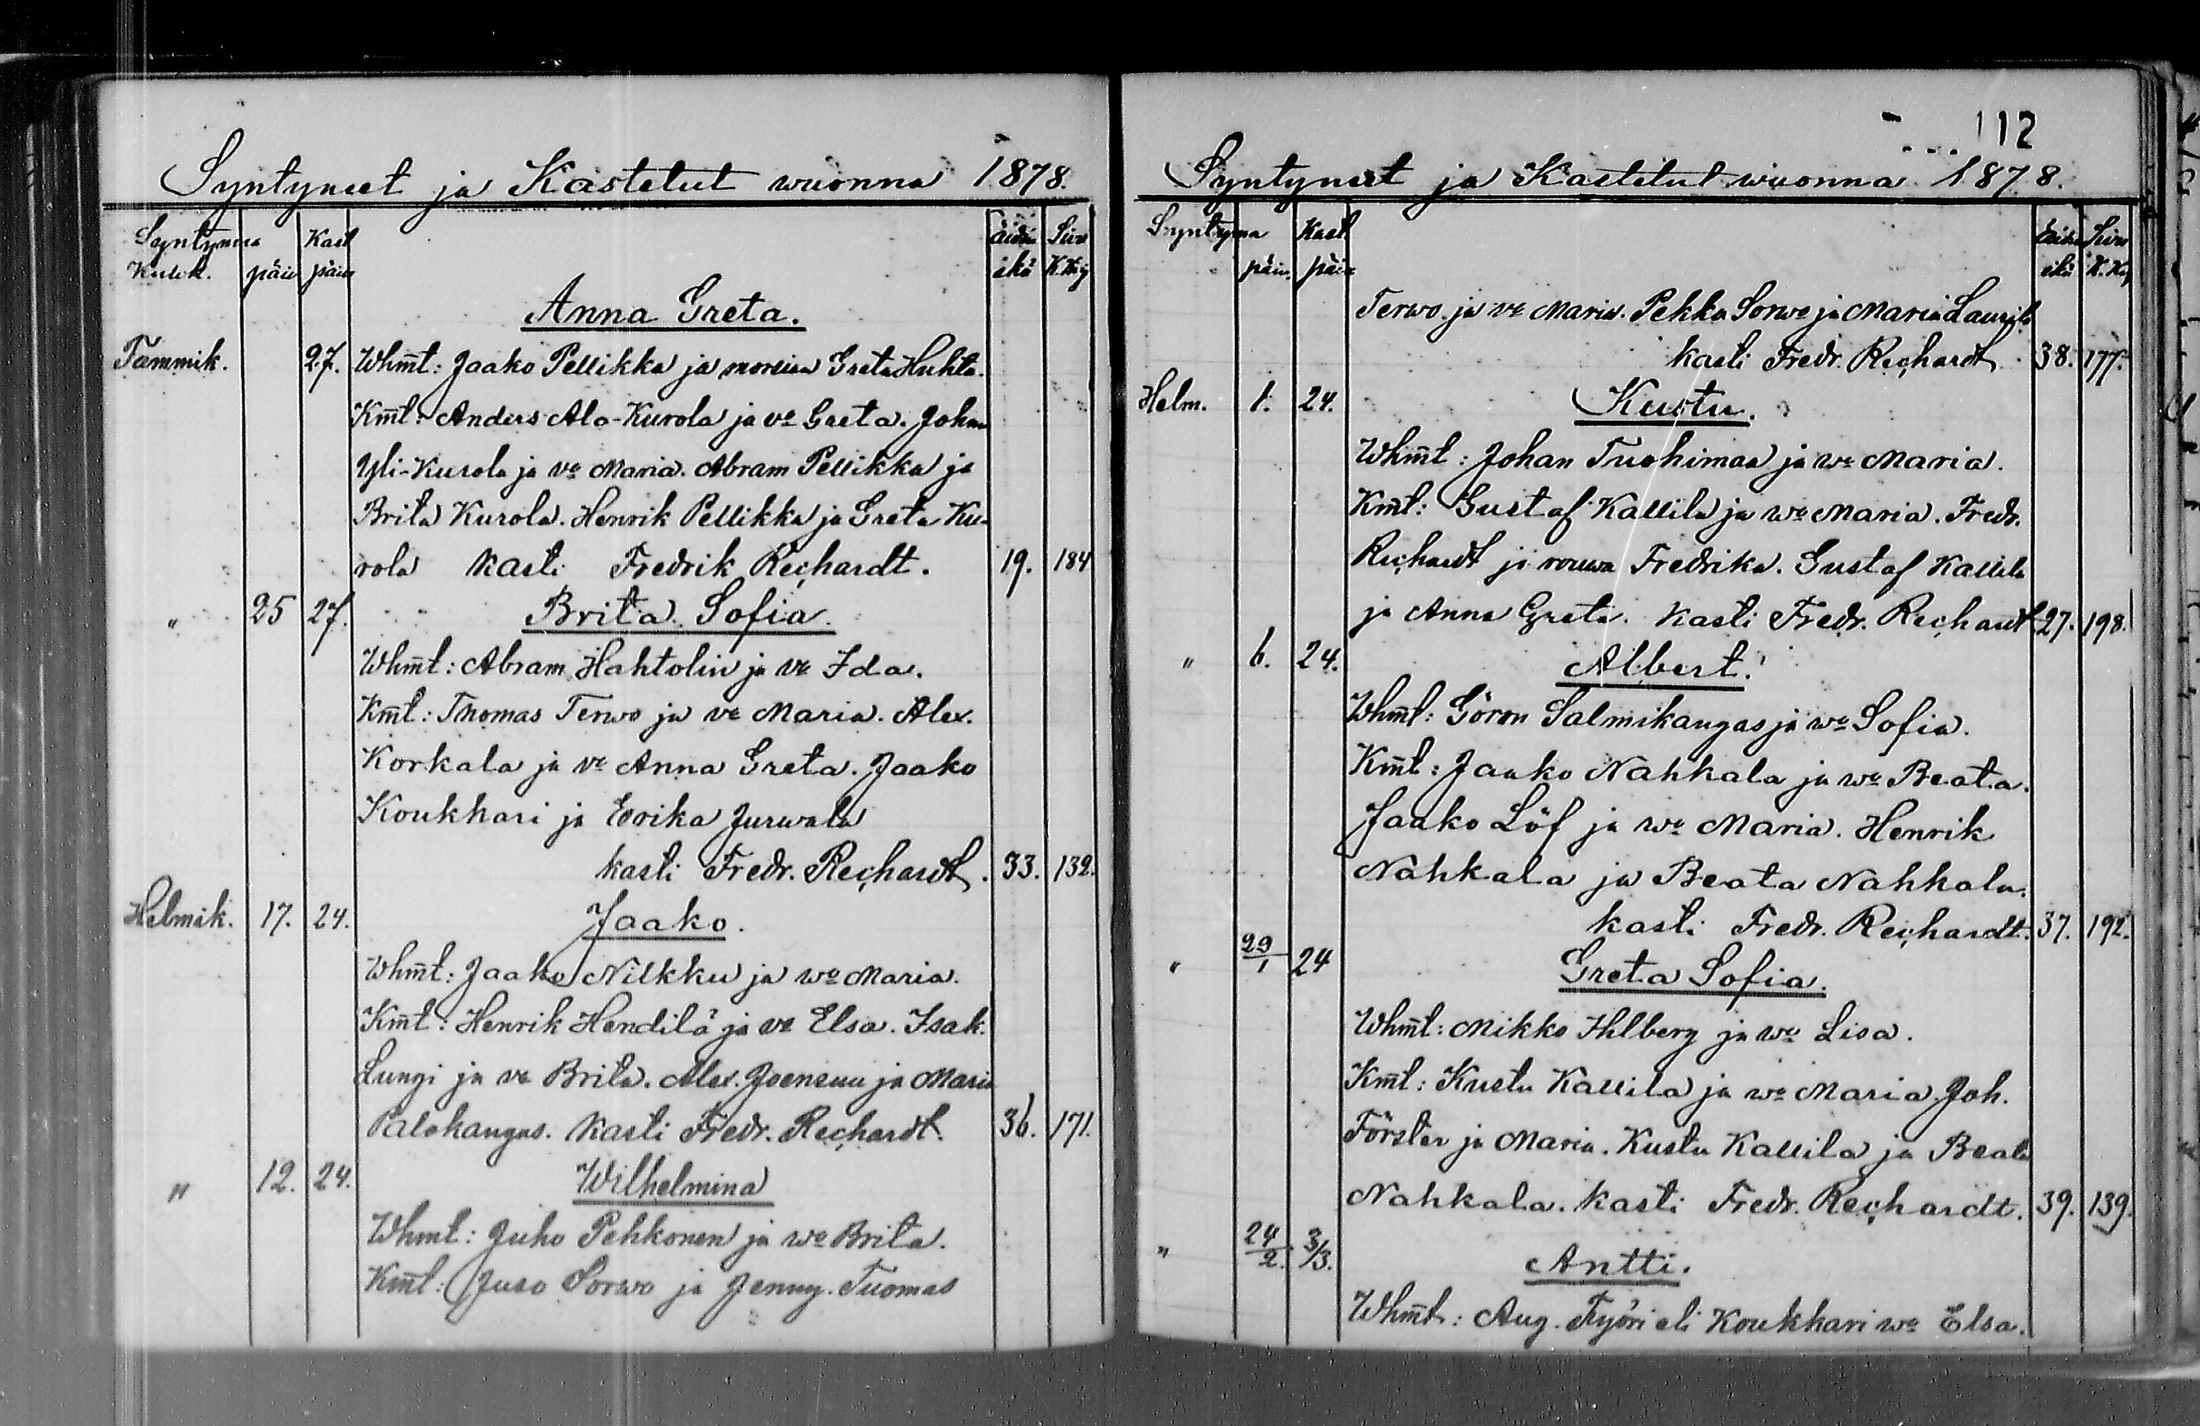 Syntyneet ja Kastetut wuonna 1878.
Syntymä Kast äidin Siw
Kuuk. päiw päiw ikä K.Kirj
Anna Greta.
Tammik. 27. Whm̅t: Jaako Pellikka ja morsian Greta Huhta.
Km̅t: Anders Ala-Kurola ja vo Greta. Johan
Yli-Kurola ja vo Maria. Abram Pellikka ja
Brita Kurola. Henrik Pellikka ja Greta Ku-
rola kasti Fredrik Rechardt. 19. 184
" 25 27. Brita Sofia.
Whm̅t: Abram Hahtolin ja vo Ida.
Km̅t: Thomas Terwo ja vo Maria. Alex.
Korkala ja vo Anna Greta. Jaako
Koukkari ja Erika Jurwala
kasti Fredr. Rechardt. 33. 132.
Helmik. 17. 24. Jaako.
Whm̅t: Jaako Nilkku ja wo Maria.
Km̅t: Henrik Hendilä ja vo Elsa. Isak.
Lungi ja vo Brita. Alex. Joensuu ja Maria
Palokangas. Kasti Fredr. Rechardt. 36. 171.
" 12. 24. Wilhelmina
Whmt: Juho Pehkonen ja wo Brita.
Km̅t: Juso Sorwo ja Jenny. Tuomas
112
Syntyneet ja Kastetut wuonna 1878.
Syntymä Kast. äidin Siwu
päiw. päiw ikä K.Ki
Terwo ja vo Maria. Pekka Sorwo ja Maria Laurila
kasti Fredr. Rechardt 38. 177.
Helm. 1. 24. Kustu.
Whm̅t: Johan Tuohimaa ja wo Maria.
Km̅t: Gustaf Kallila ja wo Maria. Fredr.
Rechardt ja rouwa Fredrika. Gustaf Kallila
ja Anna Greta. Kasti Fredr. Rechardt. 27. 198.
" 6. 24. Albert.
Whm̅t: Göran Salmikangas ja wo Sofia.
Km̅t: Jaako Nahkala ja wo Beata.
Jaako Löf ja wo Maria. Henrik
Nahkala ja Beata Nahkala.
kasti Fredr. Rechardt. 37. 192.
" 29/1 24 Greta Sofia.
Whm̅t: Mikko Ihlberg ja wo Lisa.
Km̅t: Kustu Kallila ja wo Maria. Joh.
Förster ja Maria. Kustu Kallila ja Beata
Nahkala. Kasti Fredr. Rechardt. 39. 139.
" 24/2. 3/3. Antti.
Whm̅t: Aug. Työri eli Koukkari wo Elsa.